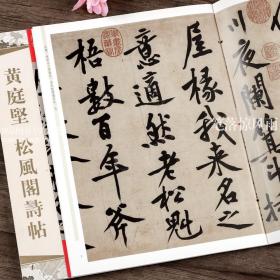 川夜闌箕斗
屋椽我来名之
意適然老松魁
梧數百年斧
黄庭堅 松風閣詩帖